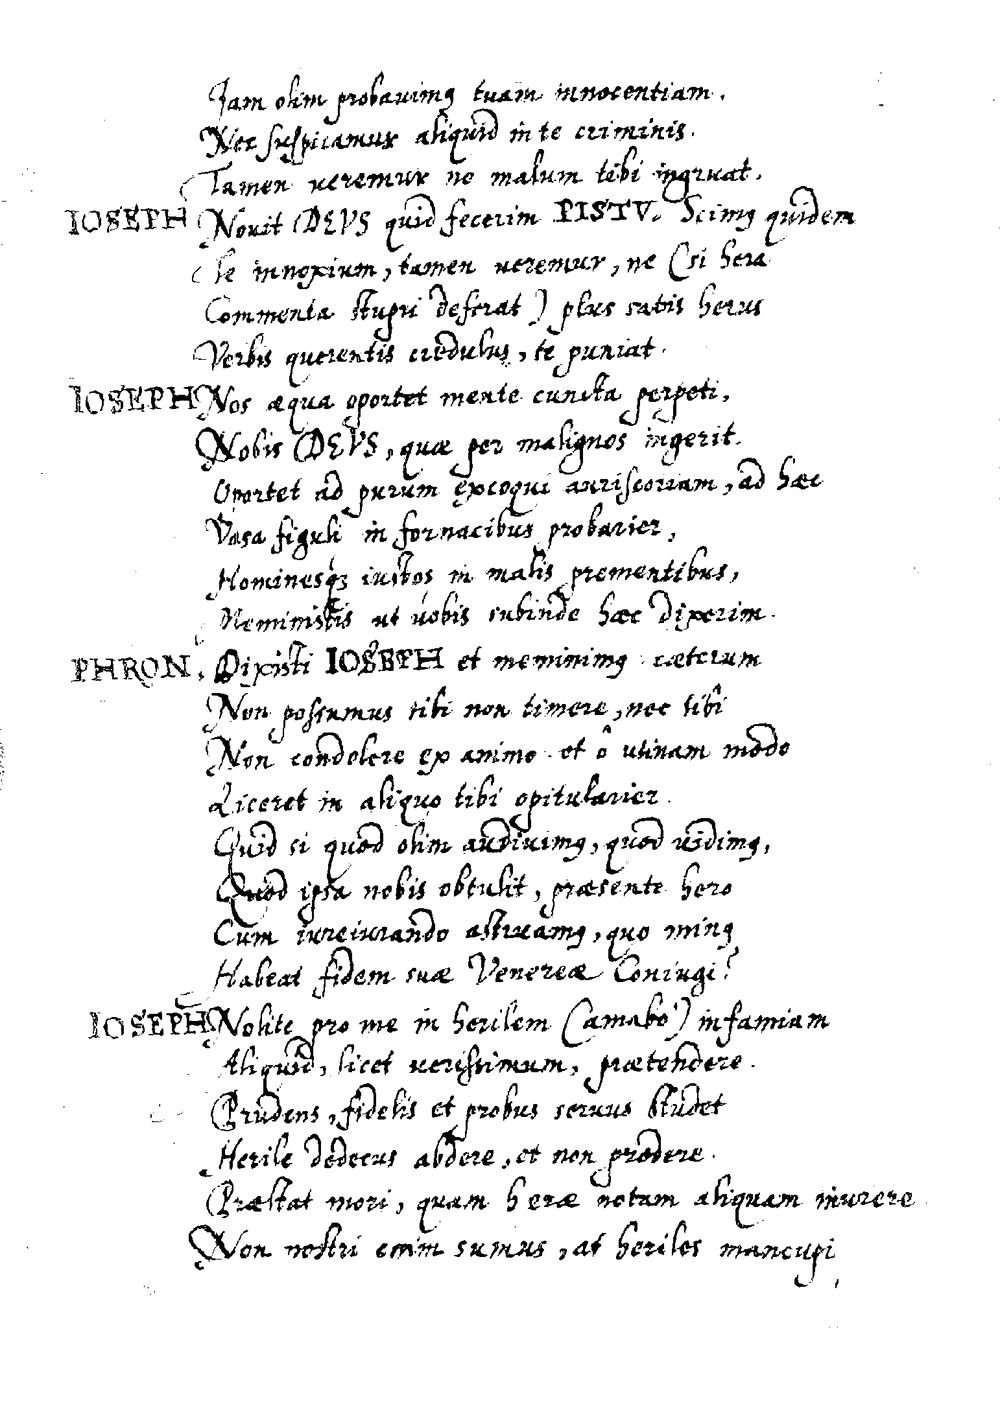 Iam olim probauimꝰ tuam innocentiam.
Nec suspicamur aliquid in te criminis.
Tamen ueremur ne malum tibi ingruat.
IOSEPH Nouit DEVS quid fecerim PISTV. Scimꝰ quidem
Te innoxium, tamen ueremur, ne (si hera
Commenta stupri deferat) plus satis herus
Verbis querentis credulus, te puniat.
IOSEPH Nos æqua oportet mente cuncta perpeti,
Nobis DEVS, quæ per malignos ingerit.
Oportet ad purum excoqui auri scoriam, ad hæc
Vasa figuli in fornacibus probarier,
Hominesqꝫ iustos in malis prementibus,
Meministis ut uobis subinde hæc dixerim.
PHRON. Dixisti IOSEPH et meminimꝰ cæterum
Non possumus tibi non timere, nec tibi
Non condolere ex animo. et ô utinam modo
Liceret in aliquo tibi opitularier.
Quid si quod olim audiuimꝰ, quod uidimꝰ,
Quod ipsa nobis obtulit, præsente hero
Cum iureiurando astruamꝰ, quo minꝰ
Habeat fidem suæ Venereæ Coniugi?
IOSEPH Nolite pro me in herilem (amabo) infamiam
Aliquid, licet uerissimum, prætendere.
Prudens, fidelis et probus seruus studet
Herile dedecus abdere, et non prodere.
Præstat mori, quam heræ notam aliquam inurere
Non nostri enim sumus, at heriles mancupi,